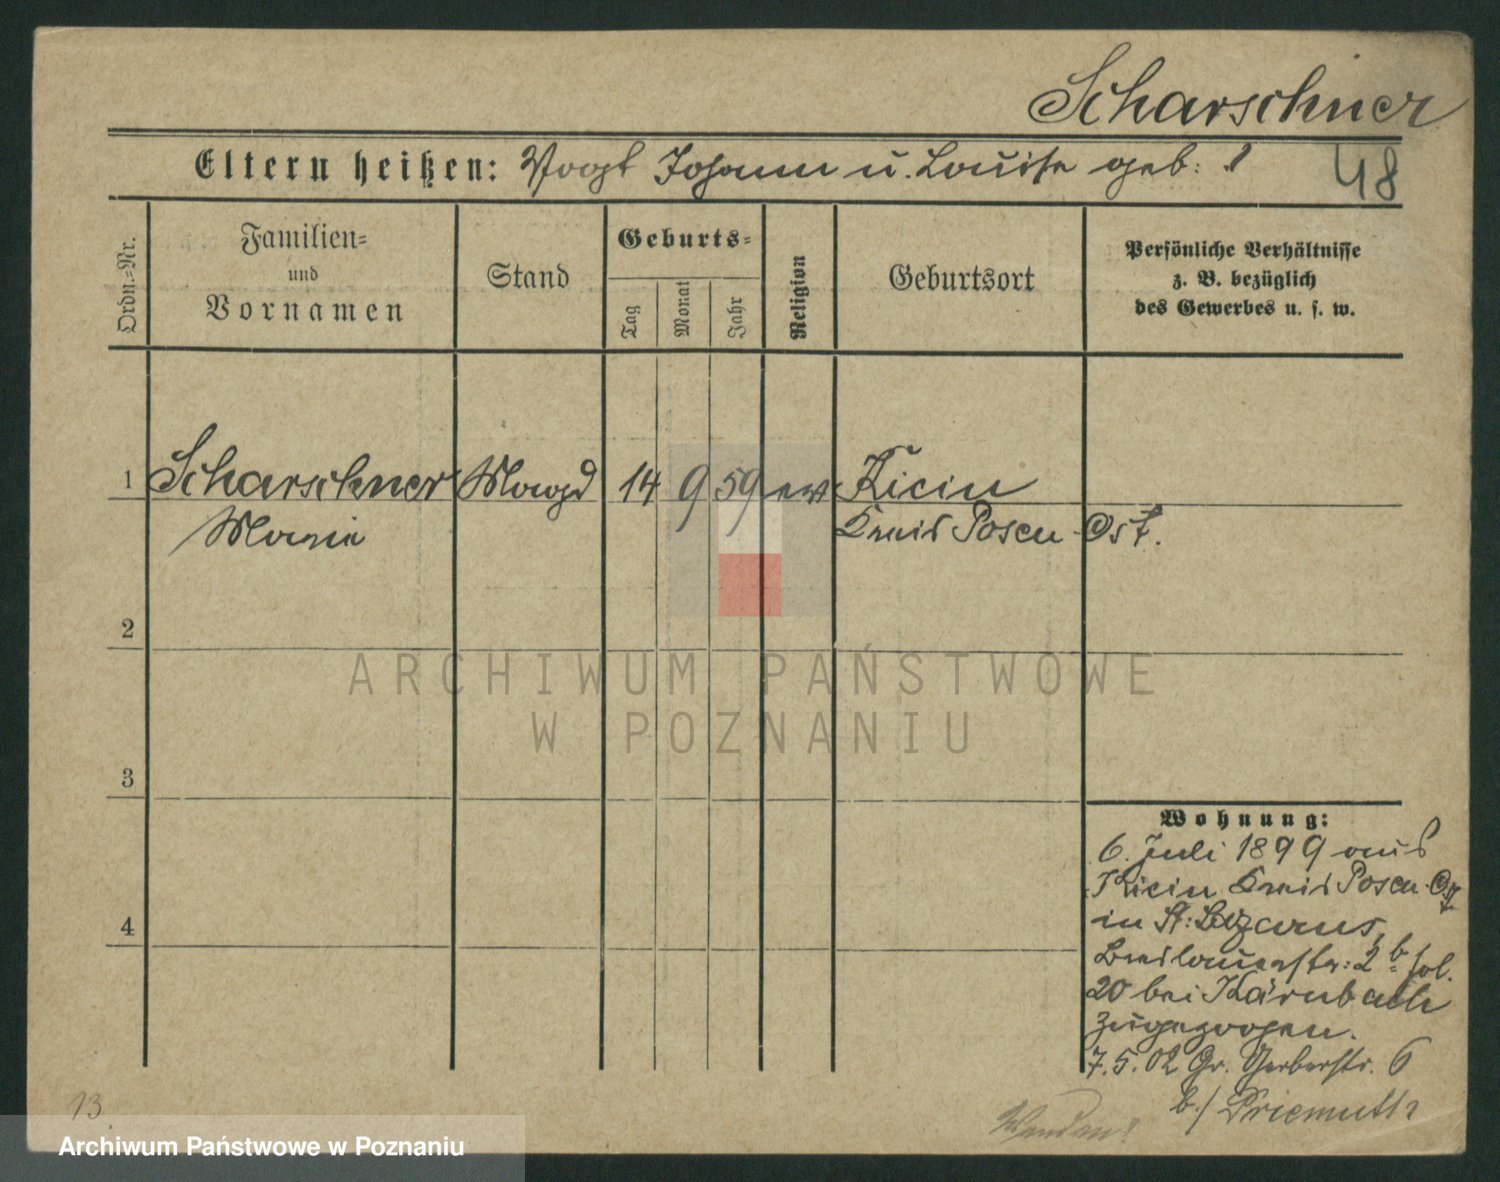 Scharschner
Eltern heißen: Vogt Johann u. Louise geb: ?
48
Ordn.=Nr.
Familien=
und
Vornamen
Stand
Geburts=
Tag
Monat
Jahr
Religion
Geburtsort
Persönliche Verhältnisse
z. B. bezüglich
des Gewerbes u. s. w.
1 Scharschner Magd 14 9 59 ev Kicin
Marie Kreis Posen-Ost.
2
3
4
Wohnung:
6. Juli 1899 aus
Kicin Kreis Posen-Ost
in St: Lazarus,
Breslauerstr: 2 b fol.
20 bei Kärnbach
zugezogen.
7.5.02 Gr. Gerberstr. 6
b./ Priemuth
Wenden!
13
ARCHIWUM PAŃSTWOWE
W POZNANIU
Archiwum Państwowe w Poznaniu